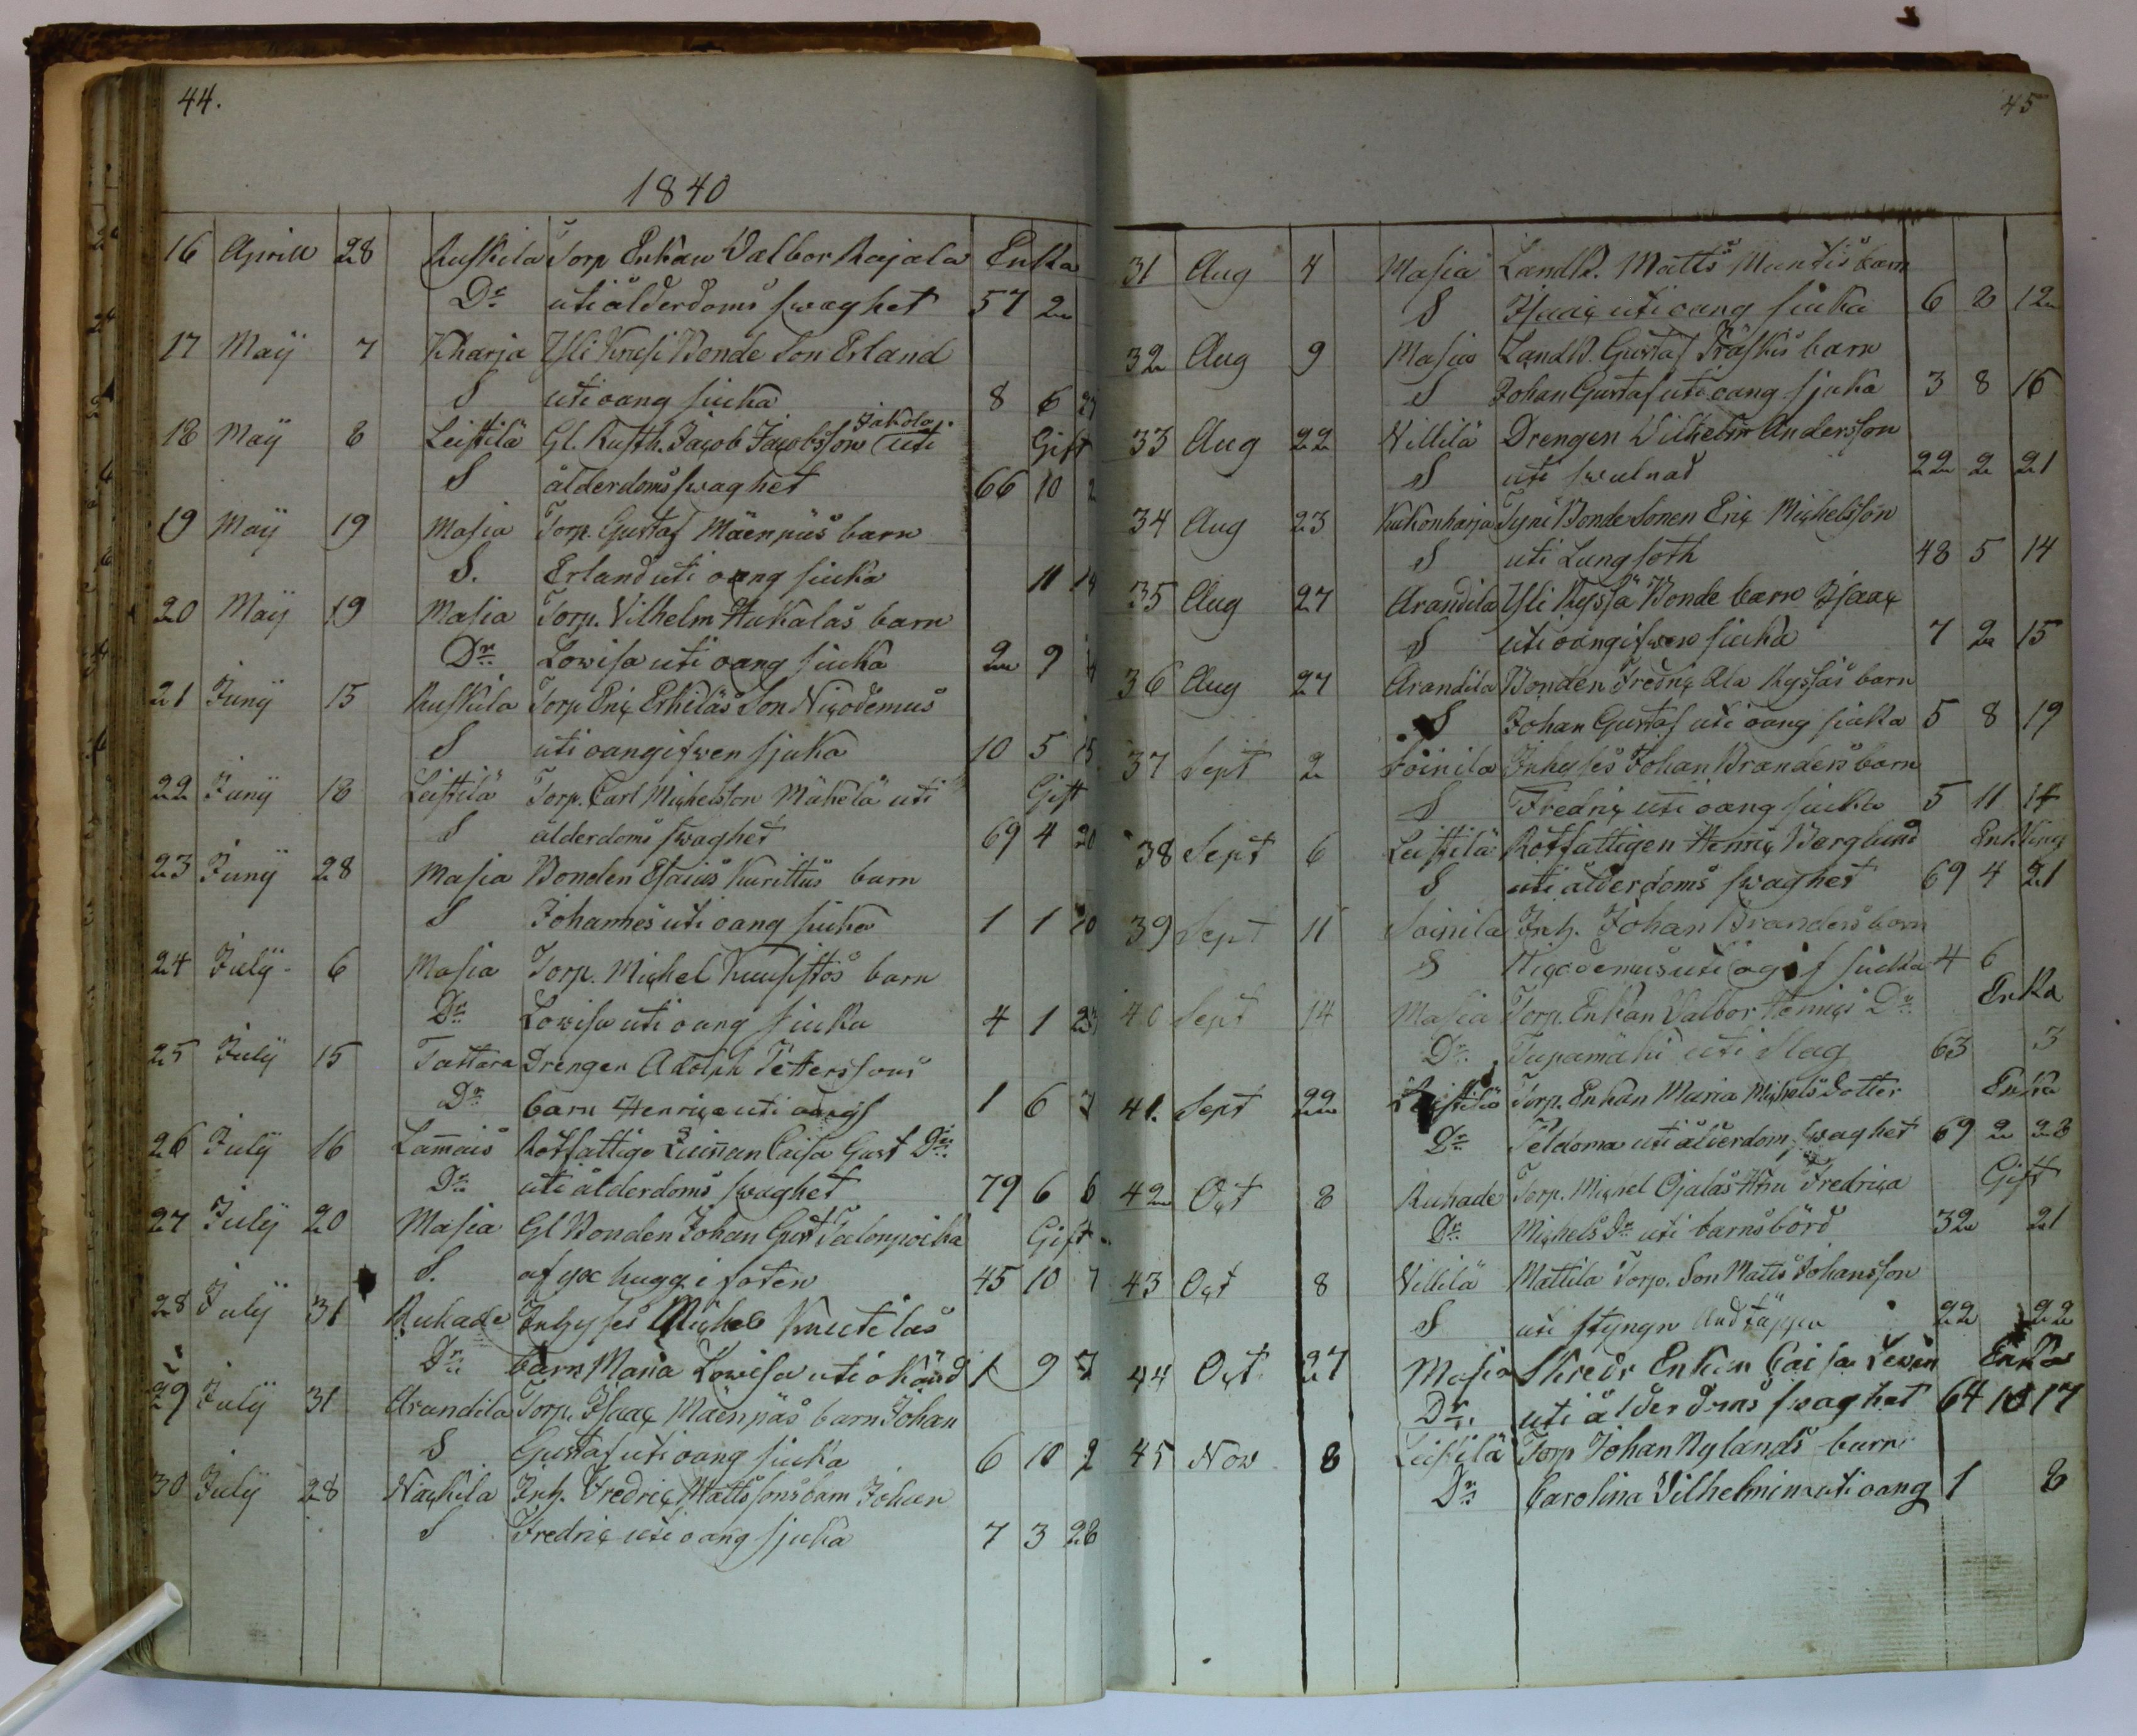 44.
1840
16 Aprill 28 Ruskila Torp Enkan Valbor Rajala Enka
Dr uti ålderdoms swaghet 57 2
17 Maÿ 7 Kharja Yli Krusi Bonde Son Erland
S uti oang siuka 8 6
18 Maÿ 8 Leistilä Gl. Rusth. Jacob Jacobsson Jakola uti Gift
S ålderdoms swaghet 66 10 2
19 Maÿ 19 Masia Torp. Gustaf Mäenpäs barn
S. Erland uti oang siuka 11 19
20 Maÿ 19 Masia Torp. Vilhelm Hukalas barn
Dr Lowisa uti oang siuka 2 9
21 Junÿ 15 Ruskila Torp Eric Erkiläs Son Nicodemus
S uti oangifwen sjuka 10 5 15
22 Junÿ 18 Leistilä Torp. Carl Michelsson Mäkelä uti Gift
S ålderdoms swaghet 69 4 20
23 Junÿ 28 Masia Bonden Esaias Kurittus barn
S Johannes uti oang siuka 1 1 10
24 Julÿ 6 Masia Torp. Michel Kuusistos barn
Dr Lowisa uti oang siuka 4 1 23
25 Julÿ 15 Tattara Drengen Adolph Petterssons
Dr barn Henrica uti oangf 1 6 7
26 Julÿ 16 Lamais Rotfattige Quinnan Caisa Gust Dr
Dr uti ålderdoms swaghet 79 6 6
27 Julÿ 20 Masia Gl Bonden Johan Gust Talonpoika Gift
S. af yx hugg i foten 45 10 7
28 Julÿ 31 Ruhade Inhyses Michel Knuutilas
Dr barn Maria Lowisa uti okänd 1 9 7
29 Julÿ 31 Arandila Torp. Isaac Mäenpäs barn Johan
S Gustaf uti oang siuka 6 10 2
30 Julÿ 28 Nackila Inh. Fredric Mattssons barn Johan
S Fredric uti oang sjuka 7 3 28
45
31 Aug 4 Masia Landb. Matts Mundis barn
S Isaac uti oang siuka 6 8 12
32 Aug 9 Masia Landb. Gustaf Träskis barn
S Johan Gustaf uti oang sjuka 3 8 16
33 Aug 22 Villilä Drengen Vilhelm Andersson
S uti swulnad 22 2 21
34 Aug 23 Kukonharja Tyni Bonde Sonen Eric Michelsson
S uti Lungsoth 48 5 14
35 Aug 27 Arandila Yli Kyssä Bonde barn Isaac
S uti oangifwen siuka 7 2 15
36 Aug 27 Arandila Bonden Fredric Ala Kyssäs barn
S Johan Gustaf uti oang siuka 5 8 19
37 Sept 2 Soinila Inhyses Johan Branders barn
S Fredric uti oang siuka 5 11 14
38 Sept 6 Leistilä Rotfattigen Henric Berglund Enkling
S uti ålderdoms swaghet 69 4 21
39 Sept 11 Soinila Inh. Johan Branders barn
S Nicodemus uti ogif siuka 4 6
40 Sept 14 Masia Torp. Enkan Valbor Henrics Dr Enka
Dr Tupamäki uti Slag 63 3
41. Sept 22 Leistilä Torp. Enkan Maria Michels Dotter Enka
Dr Peldoma uti ålderdom swaghet 69 2 28
42 Oct 8 Ruhade Torp. Michel Ojalas Hru Fredrica Gift
Dr Michels Dr uti barnsbörd 32 21
43 Oct 8 Villilä Mattila Torp. Son Matts Johansson
S uti styngn Andtäppa 22 22
44 Oct 27 Masia Skredr Enkan Caisa Lewin Enka
Dr. uti ålderdoms swaghet 64 10 17
45 Now 8 Leistilä Torp Johan Nylands barn
Dr Carolina Vilhelmina uti oang 1 8